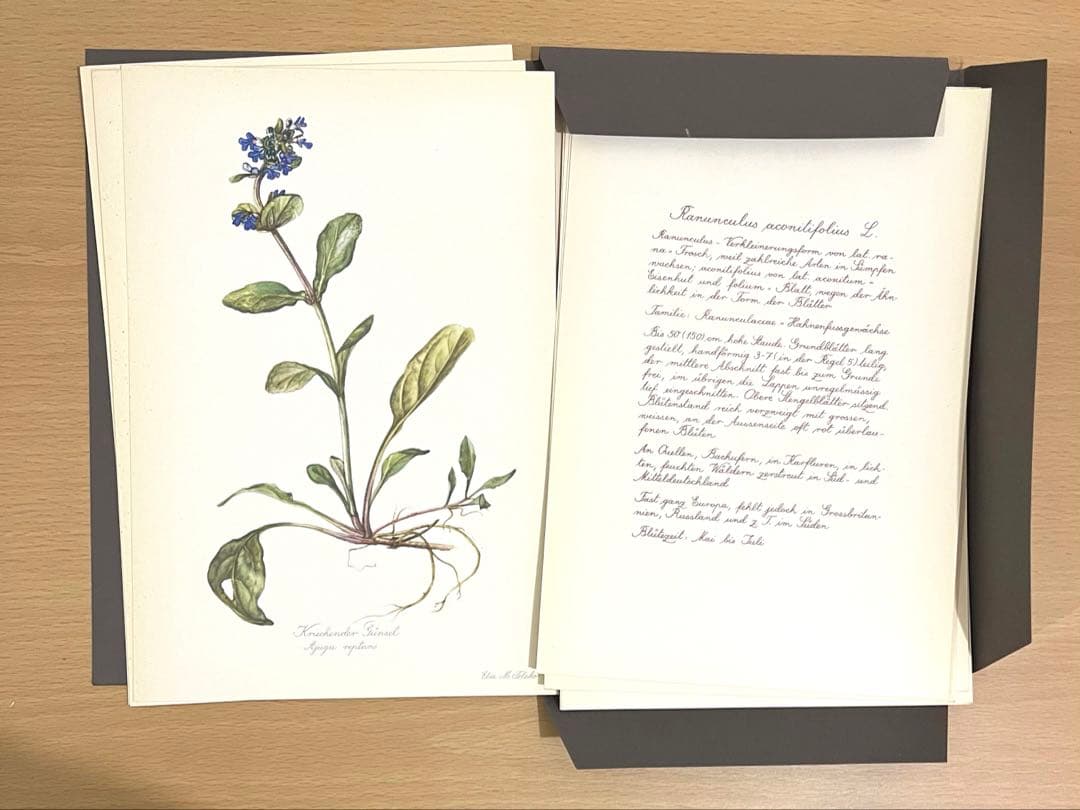 Kriechender Günsel
Ajuga reptans
Ranunculus aconitifolius L.
Ranunculus - Verkleinerungsform von lat. ra-
na = Frosch, weil zahlreiche Arten in Sümpfen
wachsen; aconitifolius von lat. aconitum =
Eisenhut und folium = Blatt, wegen der Ähn
lichkeit in der Form der Blätter
Familie: Ranunculaceae = Hahnenfussgewächse
Bis 50 (150) cm hohe Staude. Grundblätter lang
gestielt, handförmig 3-7 (in der Regel 5) teilig,
der mittlere Abschnitt fast bis zum Grunde
frei, im übrigen die Lappen unregelmässig
tief eingeschnitten. Obere Stengelblätter sitzend.
Blütenstand reich verzweigt mit grossen,
weissen, an der Aussenseite oft rot überlau-
fenen Blüten
An Quellen, Bachufern, in Karfluren, in lich-
ten, feuchten Wäldern zerstreut in Süd- und
Mitteldeutschland
Fast ganz Europa, fehlt jedoch in Grossbritan-
nien, Russland und z. T. im Süden
Blütezeit: Mai bis Juli